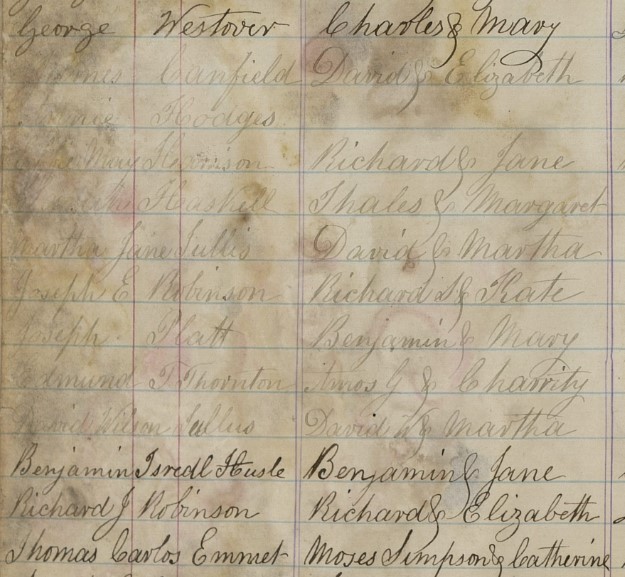 George Westover Charles & Mary
Canfield David & Elizabeth
Hodges
May Harrison Richard & Jane
Haskell Thales & Margaret
Martha Jane Tullis David & Martha
Joseph E Robinson Richard S & Kate
Joseph Platt Benjamin & Mary
Edmund T Thornton Amos G & Charrity
David Wilson Tullis David W & Martha
Benjamin Isredl Husle Benjamin & Jane
Richard J Robinson Richard & Elizabeth
Thomas Carlos Emmet Moses Simpson & Catherine